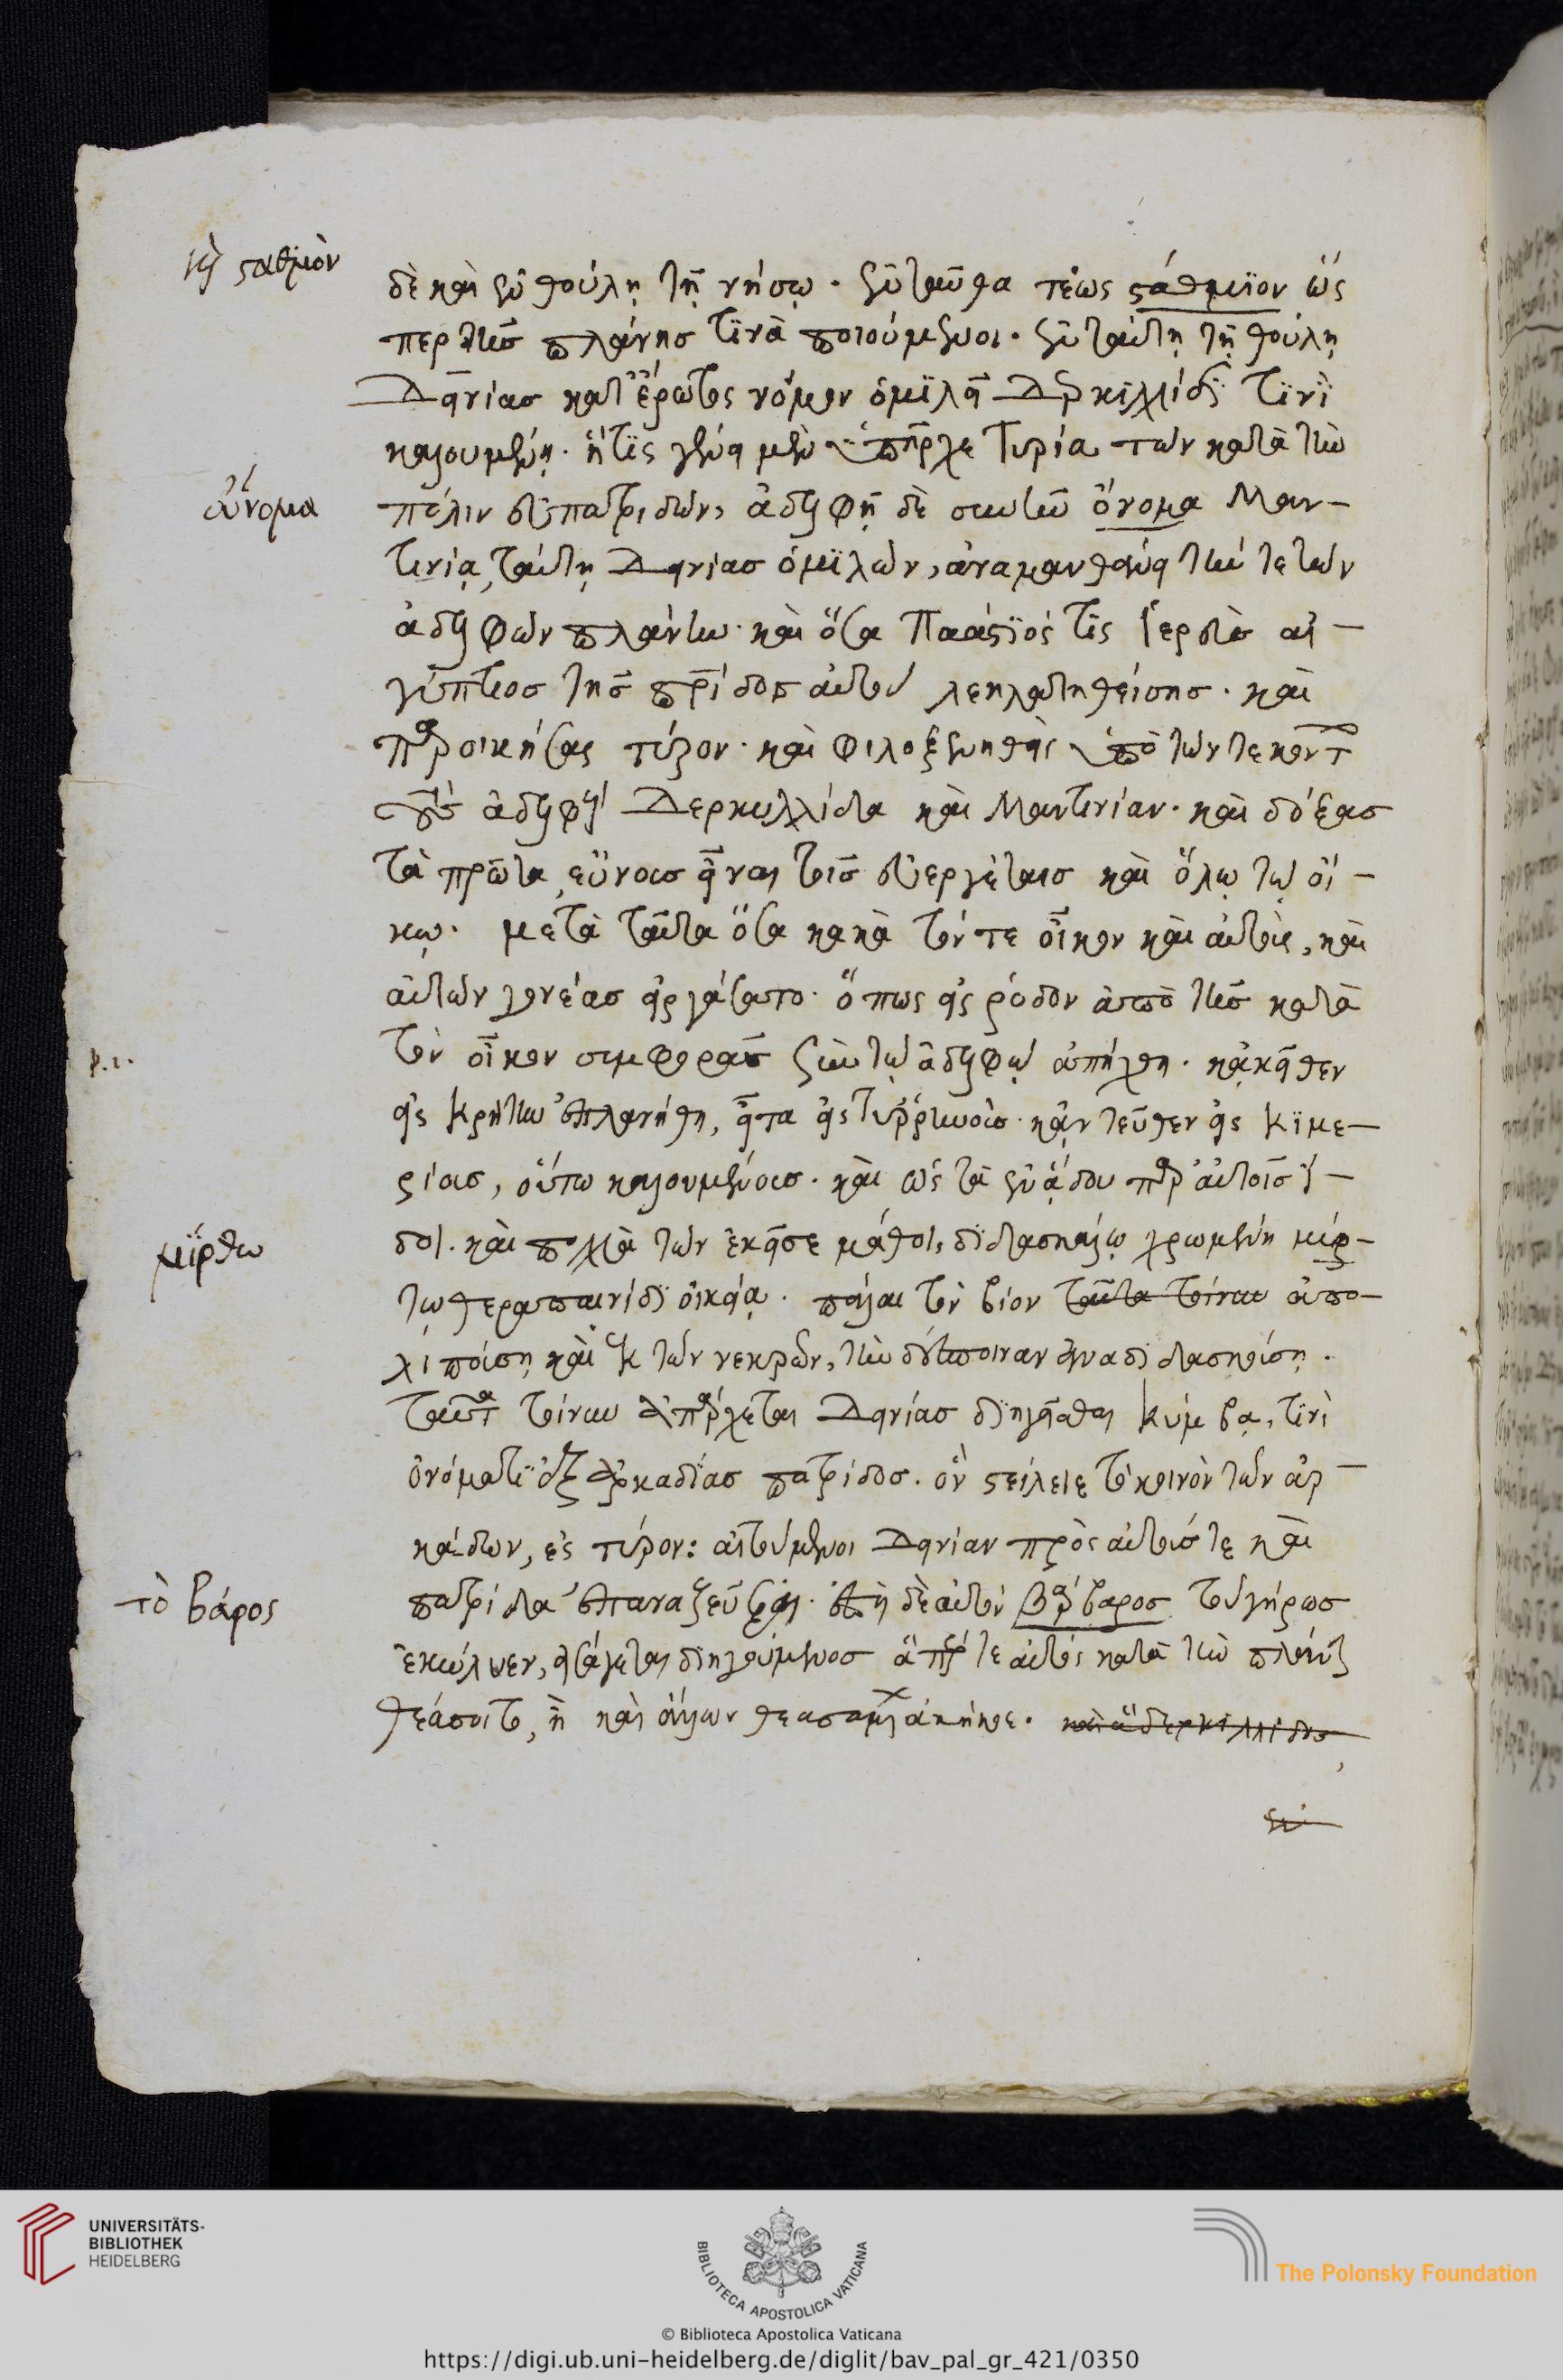 κỳ σταθμὸν
δὲ καὶ ἐν θούλῃ τῇ νήσῳ. ἐνταῦθα τέως στάθμϊον ὥς
περ τῆς πλάνης τϊνὰ ποιούμενοι. ἐν ταύτῃ τῇ θούλῃ
Δεινίας κατ' ἔρωτος νόμον ὁμϊλεῖ Δερκϊλλίδϊ τϊνϊ
καλουμένῃ. ἥτϊς γένει μὲν ὑπῆρχε Τυρία τῶν κατὰ τὴν
ὄνομα
πόλιν εὐπατριδῶν, ἀδελφῇ δὲ συνῆν ὄνομα Μαν-
τινίᾳ, ταύτῃ Δεινίας ὁμϊλῶν, ἀναμανθάνει τήν τε τῶν
ἀδελφῶν πλάνην. καὶ ὅσα Παάπϊός τϊς ἱερεὺς αἰ-
γύπτιος τῆς πρίδος αὐτοῦ λεηλατηθείσης. καὶ
παροικήσας τύρον. καὶ φιλοξενηθεὶς ὑπὸ τῶν τεκόντ
τοὺς ἀδελφοὺς Δερκυλλίδα καὶ Μαντινίαν. καὶ δόξας
τὰ πρῶτα, εὔνους εἶναι τοῖς εὐεργέταις καὶ ὅλῳ τῷ οἴ-
κῳ. μετὰ ταῦτα ὅσα κακὰ τόν τε οἶκον καὶ αὐτοὺς, καὶ
αὐτῶν γονέας εἰργάσατο. ὅπως εἰς ῥόδον ἀπὸ τῆς κατὰ
τὸν οἶκον συμφορᾶς σὺν τῷ ἀδελφῷ ἀπήχθη. κἀκεῖθεν
εἰς κρήτην ἐπλανήθη, εἶτα εἰς τυῤῥηνοὺς. κἀντεῦθεν εἰς Κϊμε-
ρίους, οὕτω καλουμένους. καὶ ὡς τὰ ἐν ᾅδου παρ' αὐτοῖς ἴ-
μϋρθω
δοι. καὶ πολλὰ τῶν ἐκεῖσε μάθοι, διδασκάλῳ χρωμένη μύρ-
τῳ θεραπαινίδϊ οἰκείᾳ. πάλαι τὸν βίον ταῦτα τοίνυν ἀπο-
λιπούσῃ καὶ ἐκ τῶν νεκρῶν, τὴν δέσποιναν ἀναδιδασκούσῃ.
ταῦτα τοίνυν ἀπάρχεται Δεινίας διηγεῖσθαι Κύμβᾳ, τϊνὶ
ὀνόματϊ ἐξ ἀρκαδίας πατρίδος. ὃν στείλειε τὸ κοινὸν τῶν ἀρ-
κάδων, ἐς τύρον: αἰτούμενοι Δεινίαν πρὸς αὐτούς τε καὶ
τὸ βάρος
πατρίδα ἐπαναζεῦξαι. ἐπεὶ δὲ αὐτὸν βάρβαρος τοῦ γήρως
ἐκώλυεν, εἰσάγεται διηγούμενος ἅπερ τε αὐτὸς κατὰ τὴν πλάνην
θεάσοιτο, ἢ καὶ ἄλλων θεασαμέν ἀκήκοε. καὶ ἃ δερκϊλλίδος